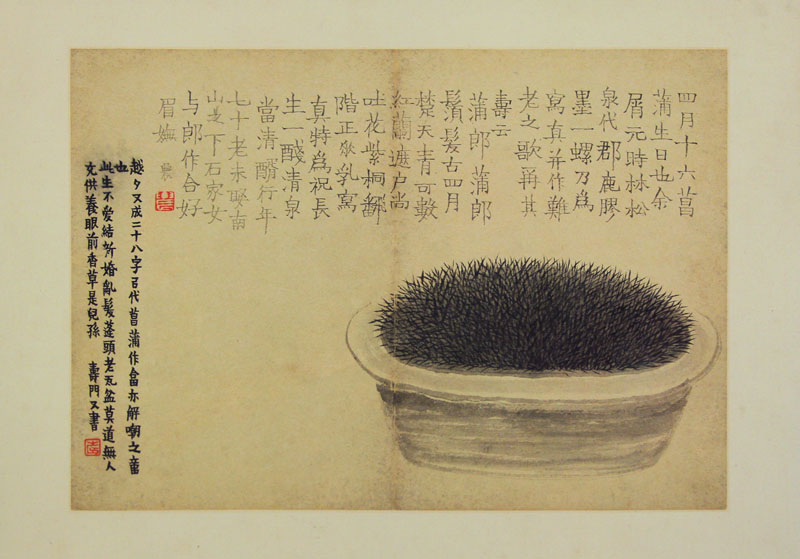 四月十六菖
蒲生日也余
屑元時林松
泉代郡鹿膠
墨一螺乃為
寫真并作難
老之歌爯其
壽云
蒲郎蒲郎
鬚髮古四月
楚天青可數
紅蘭遮戶尚
吐花紫桐翻
階正乳寫
真特為祝長
生一醆清泉
當清醑行年
七十老未娶南
山之下石家女
与郎作合好
眉嫵 農
越夕又成二十八字召代菖蒲作畣亦解嘲之意
也
此生不愛結新婚亂髮蓬頭老瓦盆莫道無人
充供養眼前香草是兒孫 壽門又書